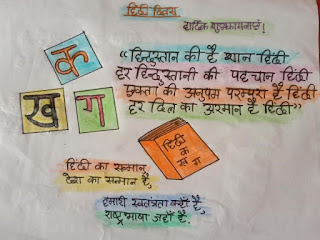 हिंदी दिवस
हार्दिक शुभकामनाएं!
क
ख ग
“हिन्दुस्तान की है शान हिंदी
हर हिन्दुस्तानी की पहचान हिंदी
एकता की अनुपम परम्परा है हिंदी
हर दिल का अरमान है हिंदी”
हिंदी
क
ख ग
हिंदी का सम्मान
देश का सम्मान है,
हमारी स्वतंत्रता वहाँ है,
राष्ट्र भाषा जहाँ है.